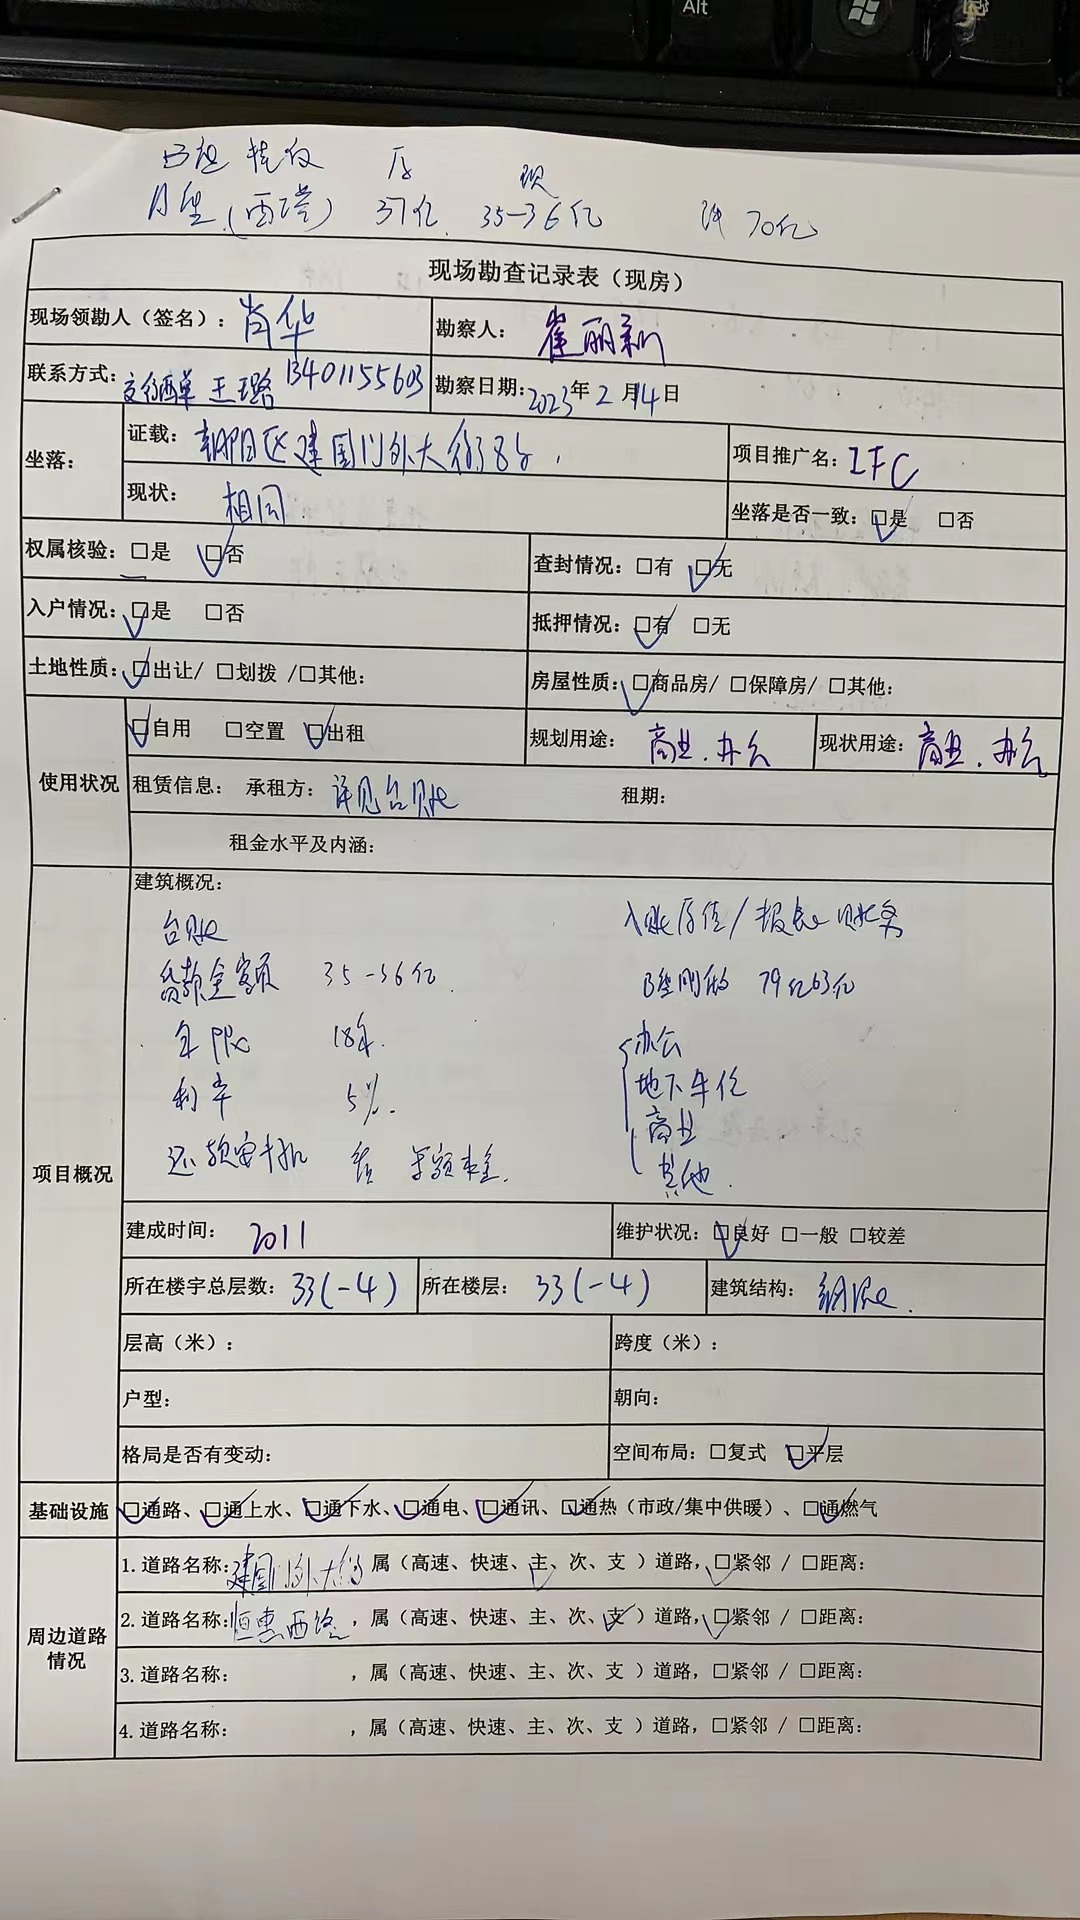 Alt
原 现
A座（西塔） 37亿 35-36亿 70亿
现场勘查记录表（现房）
现场领勘人（签名）：肖华 勘察人：崔丽新
联系方式：交行西单 王璐 13401155603 勘察日期：2023年2月14日
坐落： 证载：朝阳区建国门外大街8号 项目推广名：IFC
现状：相同 坐落是否一致：☑是 □否
权属核验：□是 ☑否 查封情况：□有 ☑无
入户情况：☑是 □否 抵押情况：☑有 □无
土地性质：☑出让/ □划拨 /□其他： 房屋性质：☑商品房/ □保障房/ □其他：
使用状况 ☑自用 □空置 ☑出租 规划用途：商业、办公 现状用途：商业、办公
租赁信息： 承租方：详见台账 租期：
租金水平及内涵：
项目概况 建筑概况：
台账 入账原值/报表、账务
贷款金额 35-36亿 B座 79亿 63亿
年限 18年 办公
利率 5% 地下车位
还款安排 商业
等额本金 其他
建成时间：2011 维护状况：☑良好 □一般 □较差
所在楼宇总层数：33(-4) 所在楼层：33(-4) 建筑结构：钢混
层高（米）： 跨度（米）：
户型： 朝向：
格局是否有变动： 空间布局：□复式 ☑平层
基础设施 ☑通路、☑通上水、☑通下水、☑通电、☑通讯、☑通热（市政/集中供暖）、☑通燃气
周边道路情况 1.道路名称：建国门外大街 属（高速、快速、主、次、支 ）道路，☑紧邻 / □距离：
2.道路名称：恒惠西路，属（高速、快速、主、次、支 ）道路，☑紧邻 / □距离：
3.道路名称： ，属（高速、快速、主、次、支 ）道路，□紧邻 / □距离：
4.道路名称： ，属（高速、快速、主、次、支 ）道路，□紧邻 / □距离：